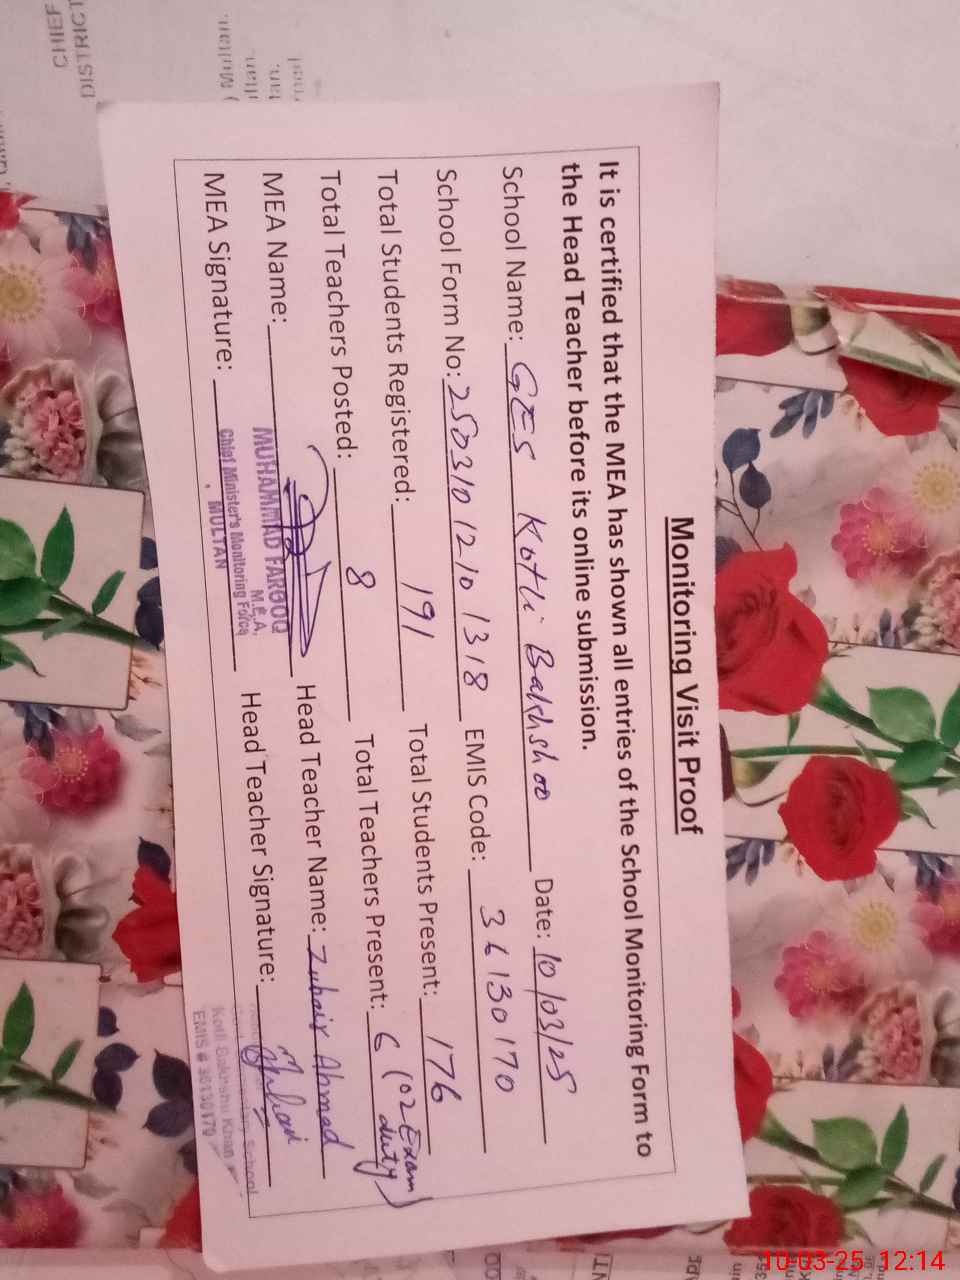 Monitoring Visit Proof
It is certified that the MEA has shown all entries of the School Monitoring Form to
the Head Teacher before its online submission.
School Name: GES Kotli Bakhshoo Date: 10/03/25
School Form No: 250310 1210 1318 EMIS Code: 36130170
Total Students Registered: 191 Total Students Present: 176
Total Teachers Posted: 8 Total Teachers Present: 6 (02 Exam duty)
MEA Name: Head Teacher Name: Zubair Ahmad
MUHAMMAD FAROOQ
M.E.A,
MEA Signature: Head Teacher Signature:
Chief Minister's Monitoring Force
MULTAN
School
Kotli Bakhshu Khan
EMIS # 36130170
DISTRICT
CHIEF
Multan.
10-03-25 12:14